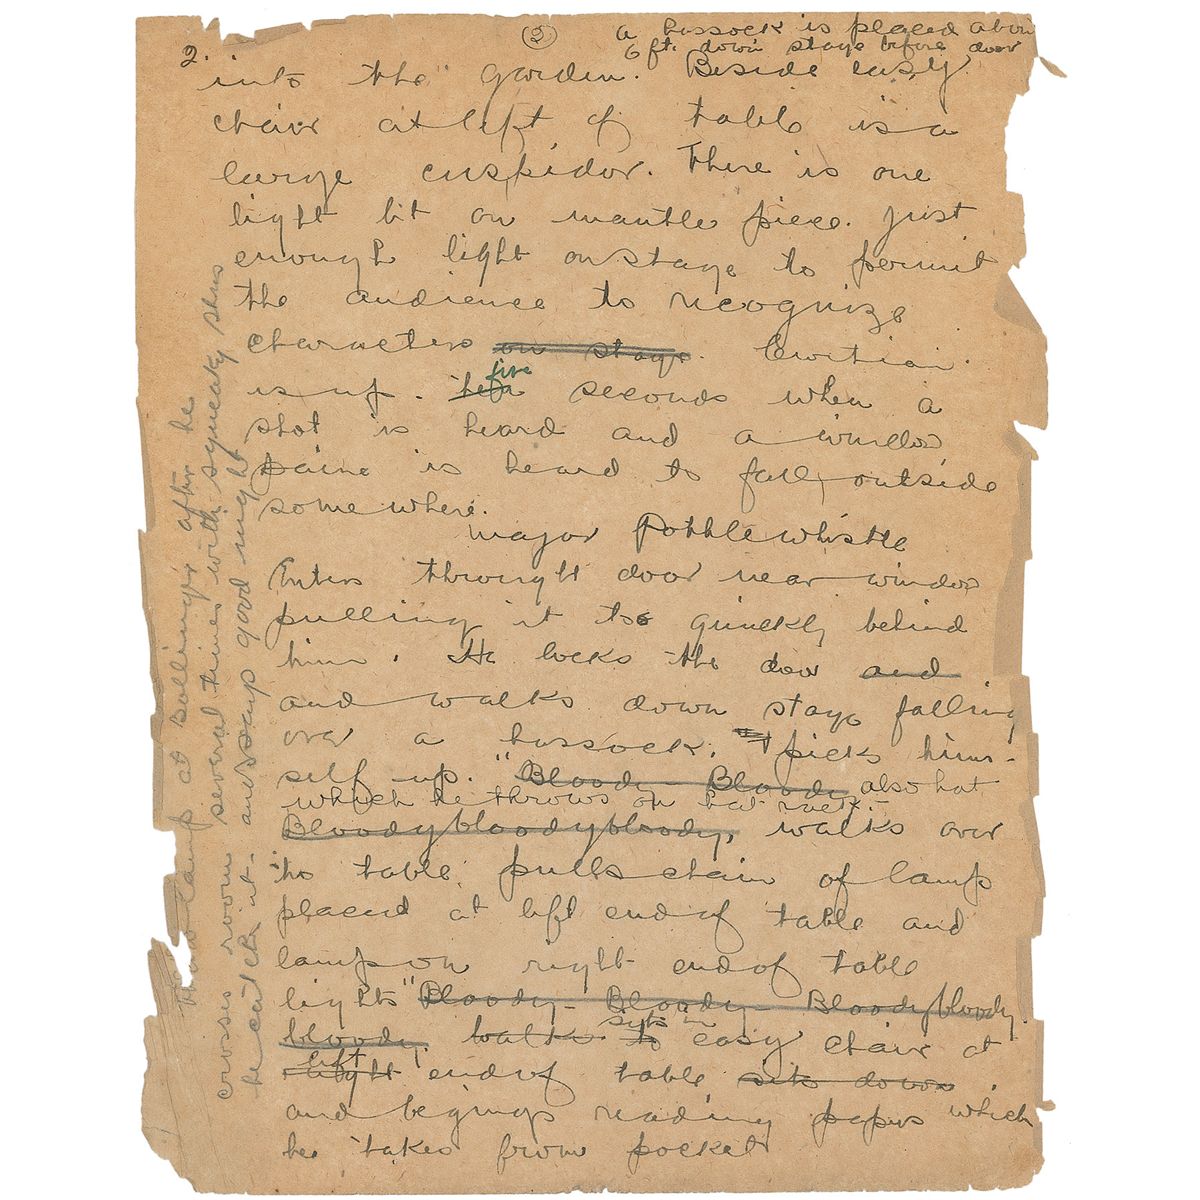 2.
(2)
a hassock is placed about
6 ft. down stage before door
into the garden. Beside easy
chair at left of table is a
large cuspidor. There is one
light lit on mantle piece. Just
enough light on stage to permit
the audience to recognize
characters on stage. Curtian
is up. ten five seconds when a
shot is heard and a window
paine is heard to fall, outside
somewhere.
Major Pobblewhistle
Enters throught door near window
pulling it to quickly behind
him. He locks the door and
and walks down stage falling
over a hassock. picks him-
self up. "Bloody Bloody also hat
which he throws on hat rack.-
Bloodybloodybloody, walks over
to table pulls chain of lamp
placed at left end of table and
lamp on right end of table
lights "Bloody - Bloody - Bloodybloody
bloody, walks to sits in easy chair at
right left end of table sits down
and begings reading papers which
he takes from pocket
Throw lamp at Bollings after he
crosses room several times with squeaky shoes
he catches it - and says good night